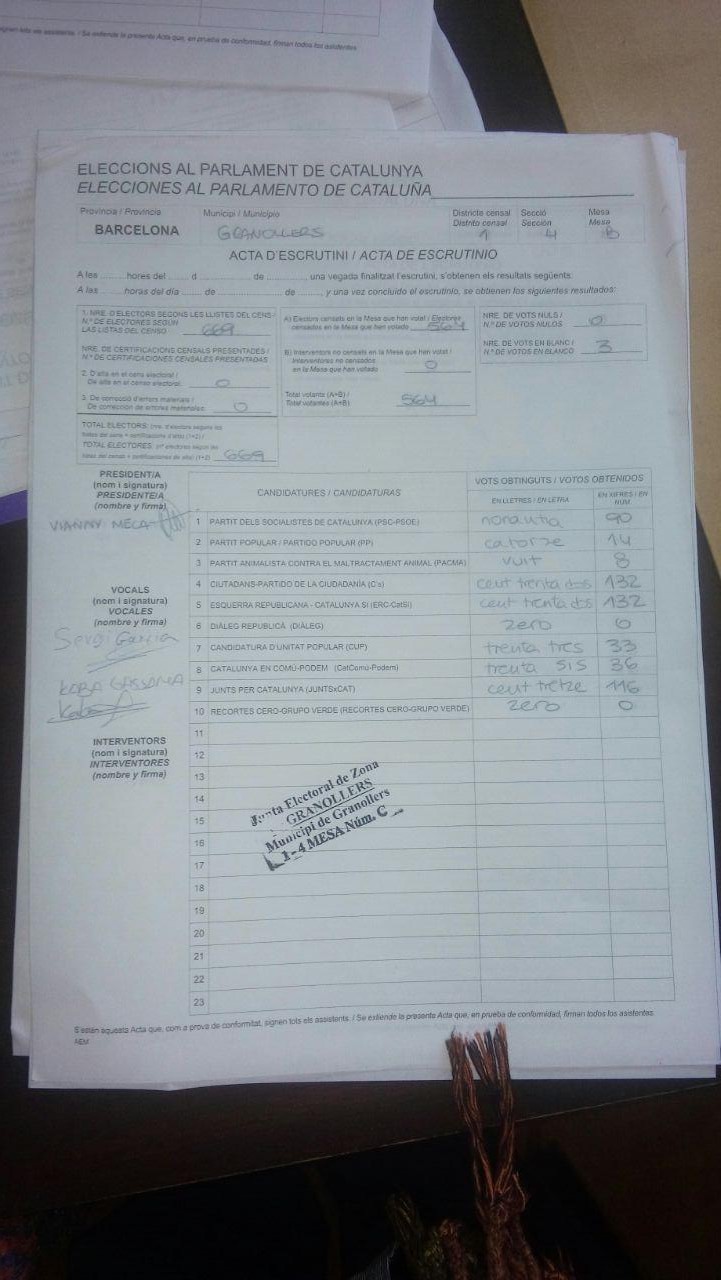 signen tots els assistents. / Se extiende la presente Acta que, en prueba de conformidad, firman todos los asistentes
ELECCIONS AL PARLAMENT DE CATALUNYA
ELECCIONES AL PARLAMENTO DE CATALUÑA
Província / Provincia Municipi / Municipio Districte censal Secció Mesa
Distrito censal Sección Mesa
BARCELONA GRANOLLERS 1 4 b
ACTA D'ESCRUTINI / ACTA DE ESCRUTINIO
A les ......... hores del ...... d ............ de ............, una vegada finalitzat l'escrutini, s'obtenen els resultats següents:
A las ......... horas del día ...... de ............ de ............, y una vez concluido el escrutinio, se obtienen los siguientes resultados:
1. NRE. D'ELECTORS SEGONS LES LLISTES DEL CENS /
N.º DE ELECTORES SEGÚN
LAS LISTAS DEL CENSO 669
NRE. DE CERTIFICACIONS CENSALS PRESENTADES /
N.º DE CERTIFICACIONES CENSALES PRESENTADAS
2. D'alta en el cens electoral /
De alta en el censo electoral: 0
3. De correcció d'errors materials /
De corrección de errores materiales: 0
TOTAL ELECTORS: (nre. d'electors segons les
llistes del cens + certificacions d'alta) (1+2) /
TOTAL ELECTORES: (nº electores según las
listas del censo + certificaciones de alta) (1+2) 669
A) Electors censats en la Mesa que han votat / Electores
censados en la Mesa que han votado 564
B) Interventors no censats en la Mesa que han votat /
Interventores no censados
en la Mesa que han votado 0
Total votants (A+B) /
Total votantes (A+B) 564
NRE. DE VOTS NULS /
N.º DE VOTOS NULOS 0
NRE. DE VOTS EN BLANC /
N.º DE VOTOS EN BLANCO 3
PRESIDENT/A
(nom i signatura)
PRESIDENTE/A
(nombre y firma)
VIANNY MECA
VOCALS
(nom i signatura)
VOCALES
(nombre y firma)
Sergi Garcia
KOBA
INTERVENTORS
(nom i signatura)
INTERVENTORES
(nombre y firma)
CANDIDATURES / CANDIDATURAS VOTS OBTINGUTS / VOTOS OBTENIDOS
EN LLETRES / EN LETRA EN XIFRES / EN NÚM.
1 PARTIT DELS SOCIALISTES DE CATALUNYA (PSC-PSOE) nonanta 90
2 PARTIT POPULAR / PARTIDO POPULAR (PP) catorze 14
3 PARTIT ANIMALISTA CONTRA EL MALTRACTAMENT ANIMAL (PACMA) vuit 8
4 CIUTADANS-PARTIDO DE LA CIUDADANÍA (C's) cent trenta dos 132
5 ESQUERRA REPUBLICANA - CATALUNYA SÍ (ERC-CatSí) cent trenta dos 132
6 DIÀLEG REPUBLICÀ (DIÀLEG) zero 0
7 CANDIDATURA D'UNITAT POPULAR (CUP) trenta tres 33
8 CATALUNYA EN COMÚ-PODEM (CatComú-Podem) trenta sis 36
9 JUNTS PER CATALUNYA (JUNTSxCAT) cent tretze 116
10 RECORTES CERO-GRUPO VERDE (RECORTES CERO-GRUPO VERDE) zero 0
11
12
13
14
15
16
17
18
19
20
21
22
23
Junta Electoral de Zona
GRANOLLERS
Municipi de Granollers
1 - 4 MESA Núm. C
S'estén aquesta Acta que, com a prova de conformitat, signen tots els assistents. / Se extiende la presente Acta que, en prueba de conformidad, firman todos los asistentes.
AEM